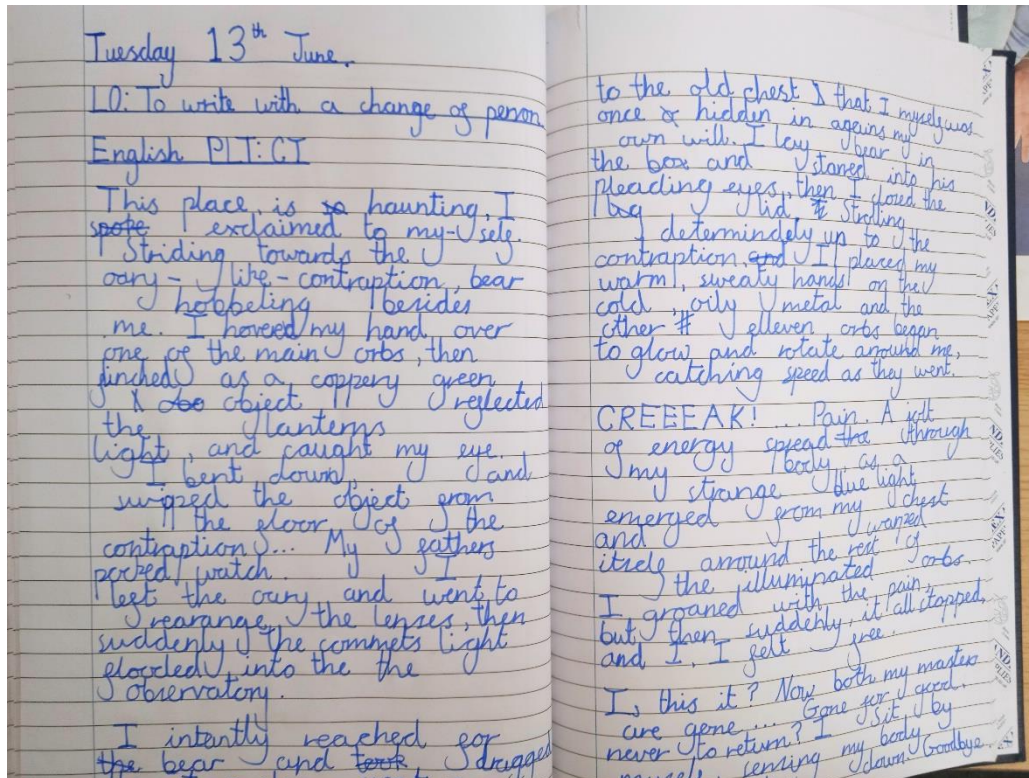 Tuesday 13th June.
LO: To write with a change of person
English PLT: CT
This place is so haunting, I
spoke exclaimed to my-self.
Striding towards the
oary-like-contraption, bear
hobbeling besides
me. I hovered my hand over
one of the main orbs, then
flinched as a coppery green
object reflected
the lanterns
light, and caught my eye.
I bent down, and
swipped the object from
the floor of the
contraption... My fathers
pocked watch. I
left the oary and went to
rearange the lenses, then
suddenly the commets light
flooded into the the
observatory.
I intantly reached for
the bear and took, dragged
to the old chest that I myself was
once hidden in agains my
own will. I lay bear in
the box and stared into his
pleading eyes, then I closed the
big lid. Strolling
determindely up to the
contraption, and I placed my
warm, sweaty hands on the
cold, oily metal and the
other elleven orbs began
to glow and rotate arround me,
catching speed as they went.
CREEEAK! ... Pain. A jolt
of energy spread through
my body, as a
strange blue light
emerged from my chest
and warped
itself arround the rest of
the illuminated orbs.
I groaned with the pain,
but then suddenly, it all stopped,
and I, I felt free.
I, this it? Now both my masters
are gone... Gone for good.
never to return? I sit by
my body
down. Goodbye